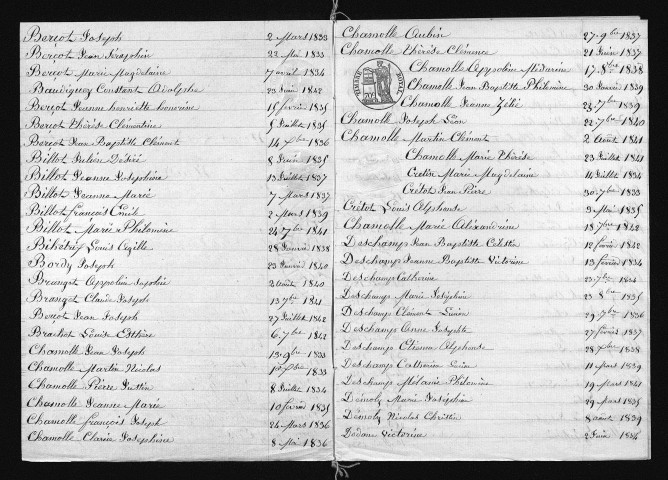 Berçot Joseph 2 Mars 1833
Berçot Jean Séraphin 22 Mai 1833
Berçot Marie Magdelaine 7 avril 1834
Baudiquey Constant Adolphe 23 Juin 1842
Berçot Jeanne henriette honorine 15 février 1835
Berçot Thérèse Clémentine 5 Juillet 1835
Berçot Jean Baptiste Clément 14 Xbre 1836
Billot Julien Désiré 8 Juin 1835
Billot Jeanne Joséphine 13 Juillet 1837
Billot Jeanne Marie 7 Mars 1837
Billot françois Emile 2 Mars 1839
Billot Marie Philomène 24 7bre 1841
Louis 28 Janvier 1838
Bordy Joseph 23 Janvier 1840
Brangot Appolin 2 août 1840
Brangot Claude Joseph 13 7bre 1841
Berçot Jean Joseph 27 Juillet 1842
Brachot Louise 6 7bre 1842
Chamolle Jean Joseph 13 9bre 1833
Chamolle Martin Nicolas 1833
Chamolle Pierre Justin 8 Juillet 1834
Chamolle Jeanne Marie 10 février 1835
Chamolle françois Joseph 24 Mars 1836
Chamolle Clarice Joséphine 8 Mai 1836
Chamolle Aubin 27 9bre 1837
Chamolle Thérèse Clémence 21 Juin 1837
TIMBRE ROYAL
Chamolle Appoline 17 8bre 1838
Chamolle Jean Baptiste Philémon 30 Janvier 1839
Chamolle Jeanne Zélie 22 7bre 1839
Chamolle Joseph Léon 22 7bre 1840
Chamolle Martin Clément 2 Août 1841
Chamolle Marie Thérèse 23 Juillet 1841
Crétin Marie Magdelaine 14 Juillet 1834
Crétot Jean Pierre 30 7bre 1833
Crétot Louis Alphonse 9 Mai 1835
Chamolle Marie Alexandrine 18 7bre 1842
Deschamps Jean Baptiste Célestin 12 février 1842
Deschamps Jeanne Baptiste Victorine 13 février 1834
Deschamps Catherine 23 7bre 1834
Deschamps Marie Joséphine 23 8bre 1835
Deschamps Clément 29 7bre 1836
Deschamps Anne 27 février 1837
Deschamps Etienne Alphonse 28 7bre 1838
Deschamps Catherine 11 Mars 1839
Deschamps Mélanie Philomène 19 Mars 1841
Démoly Marie Joséphine 29 Mars 1835
Démoly Nicolas Christin 8 août 1839
Dodane Victorine 2 Juin 1834